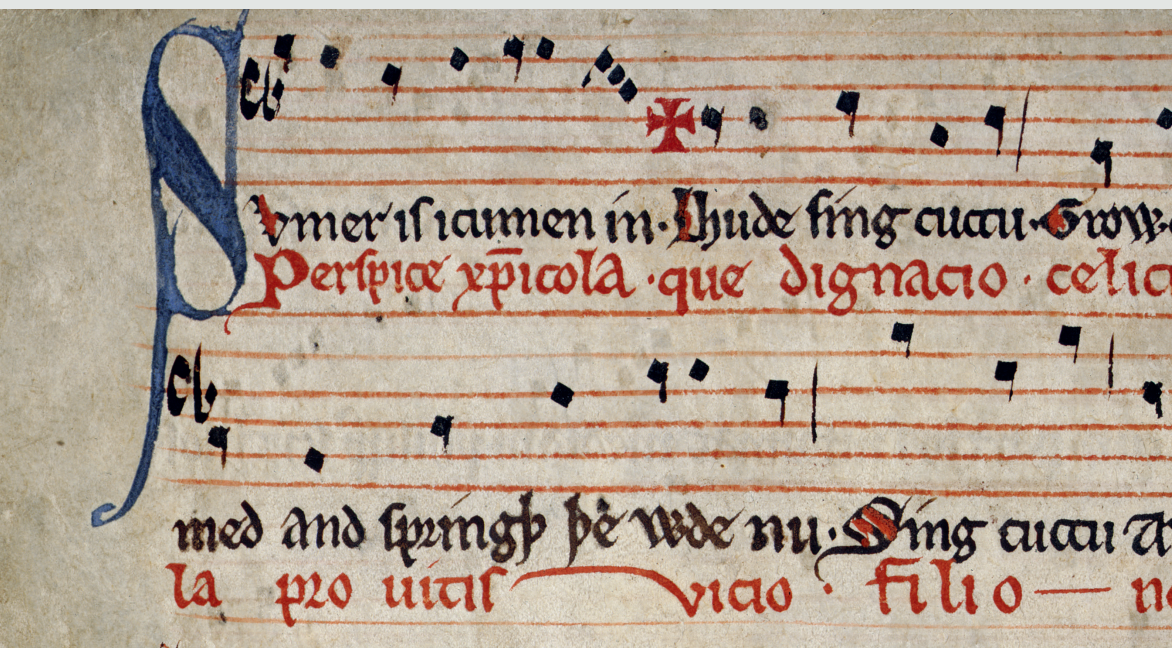 Svmer is icumen in· Lhude sing cuccu· Grow
Perspice xp̄icola · que dignacio · celic
med and springþ þe wde nu· Sing cuccu
la pro uitis vicio · filio — n